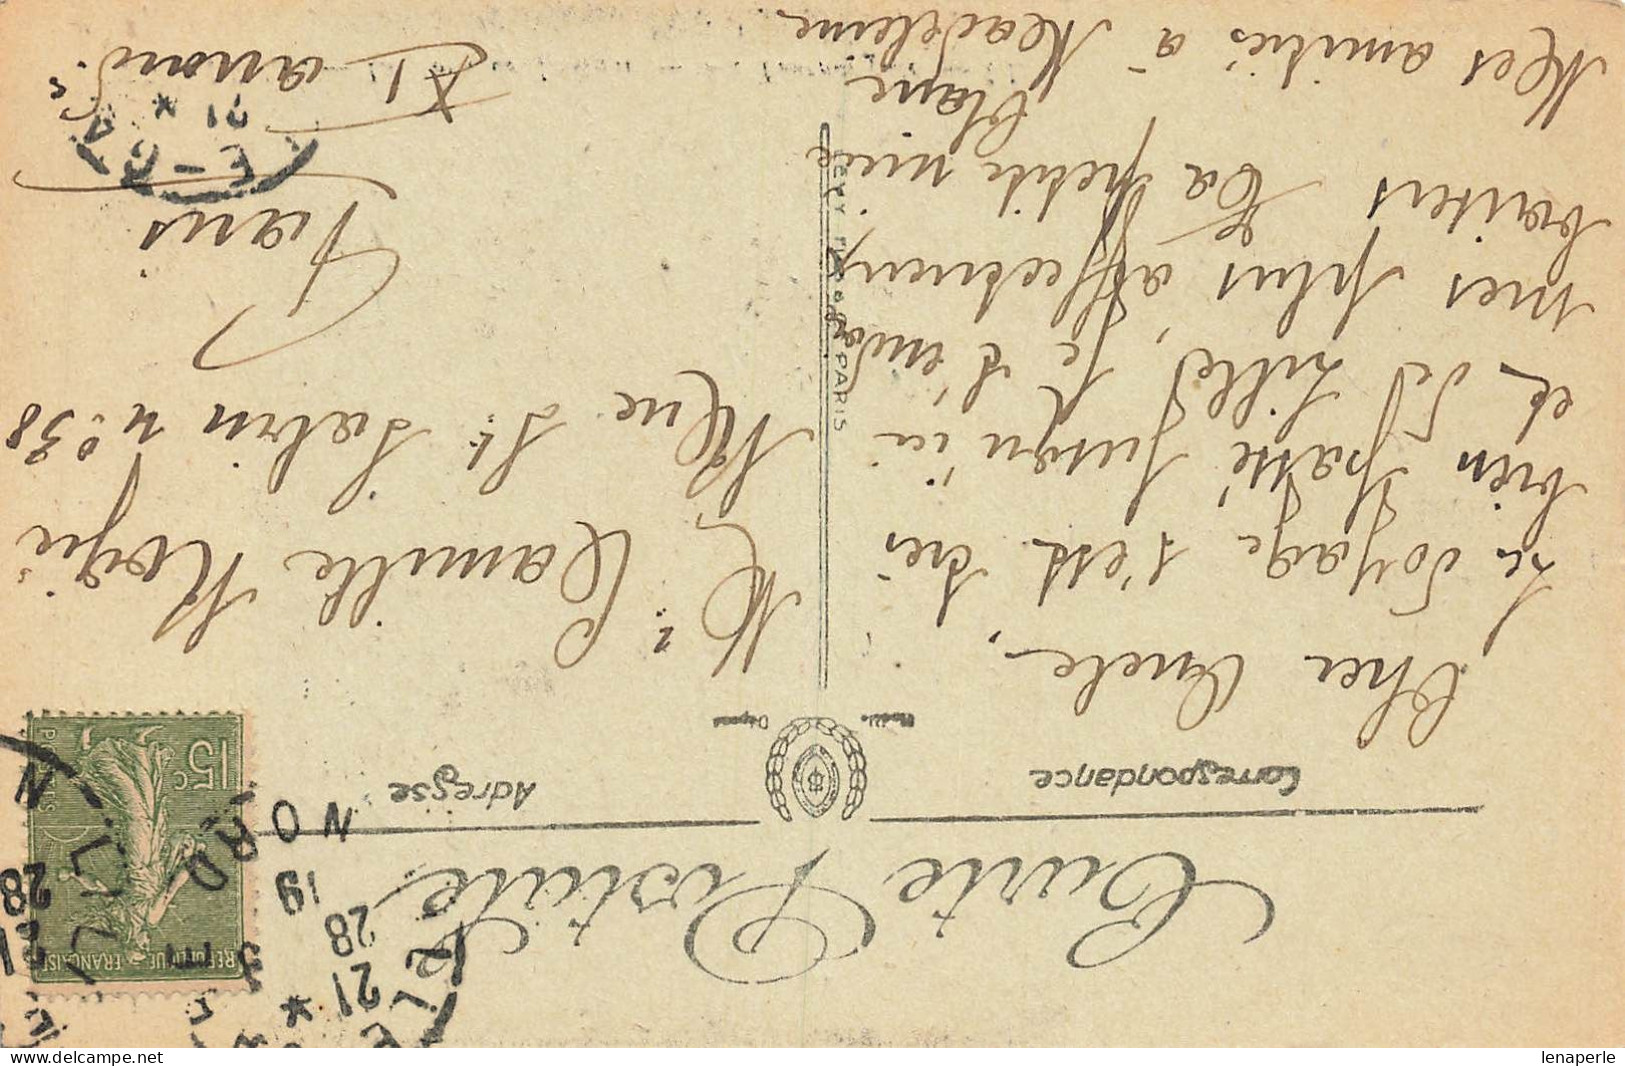 Carte Postale
Correspondance
Adresse
Modèle Déposé
Cher Oncle,
Le voyage s'est très
bien passé jusqu'ici
et de Lille, je t'envoie
mes plus affectueux
baisers Ta petite nièce
Mes amitiés à Madeleine
Mr. Camille
Rue St Sabin n° 38
Paris
PARIS
15c
POSTES
REPUBLIQUE FRANÇAISE
LILLE
NORD
21
28
19
21
28
21
lenaperle